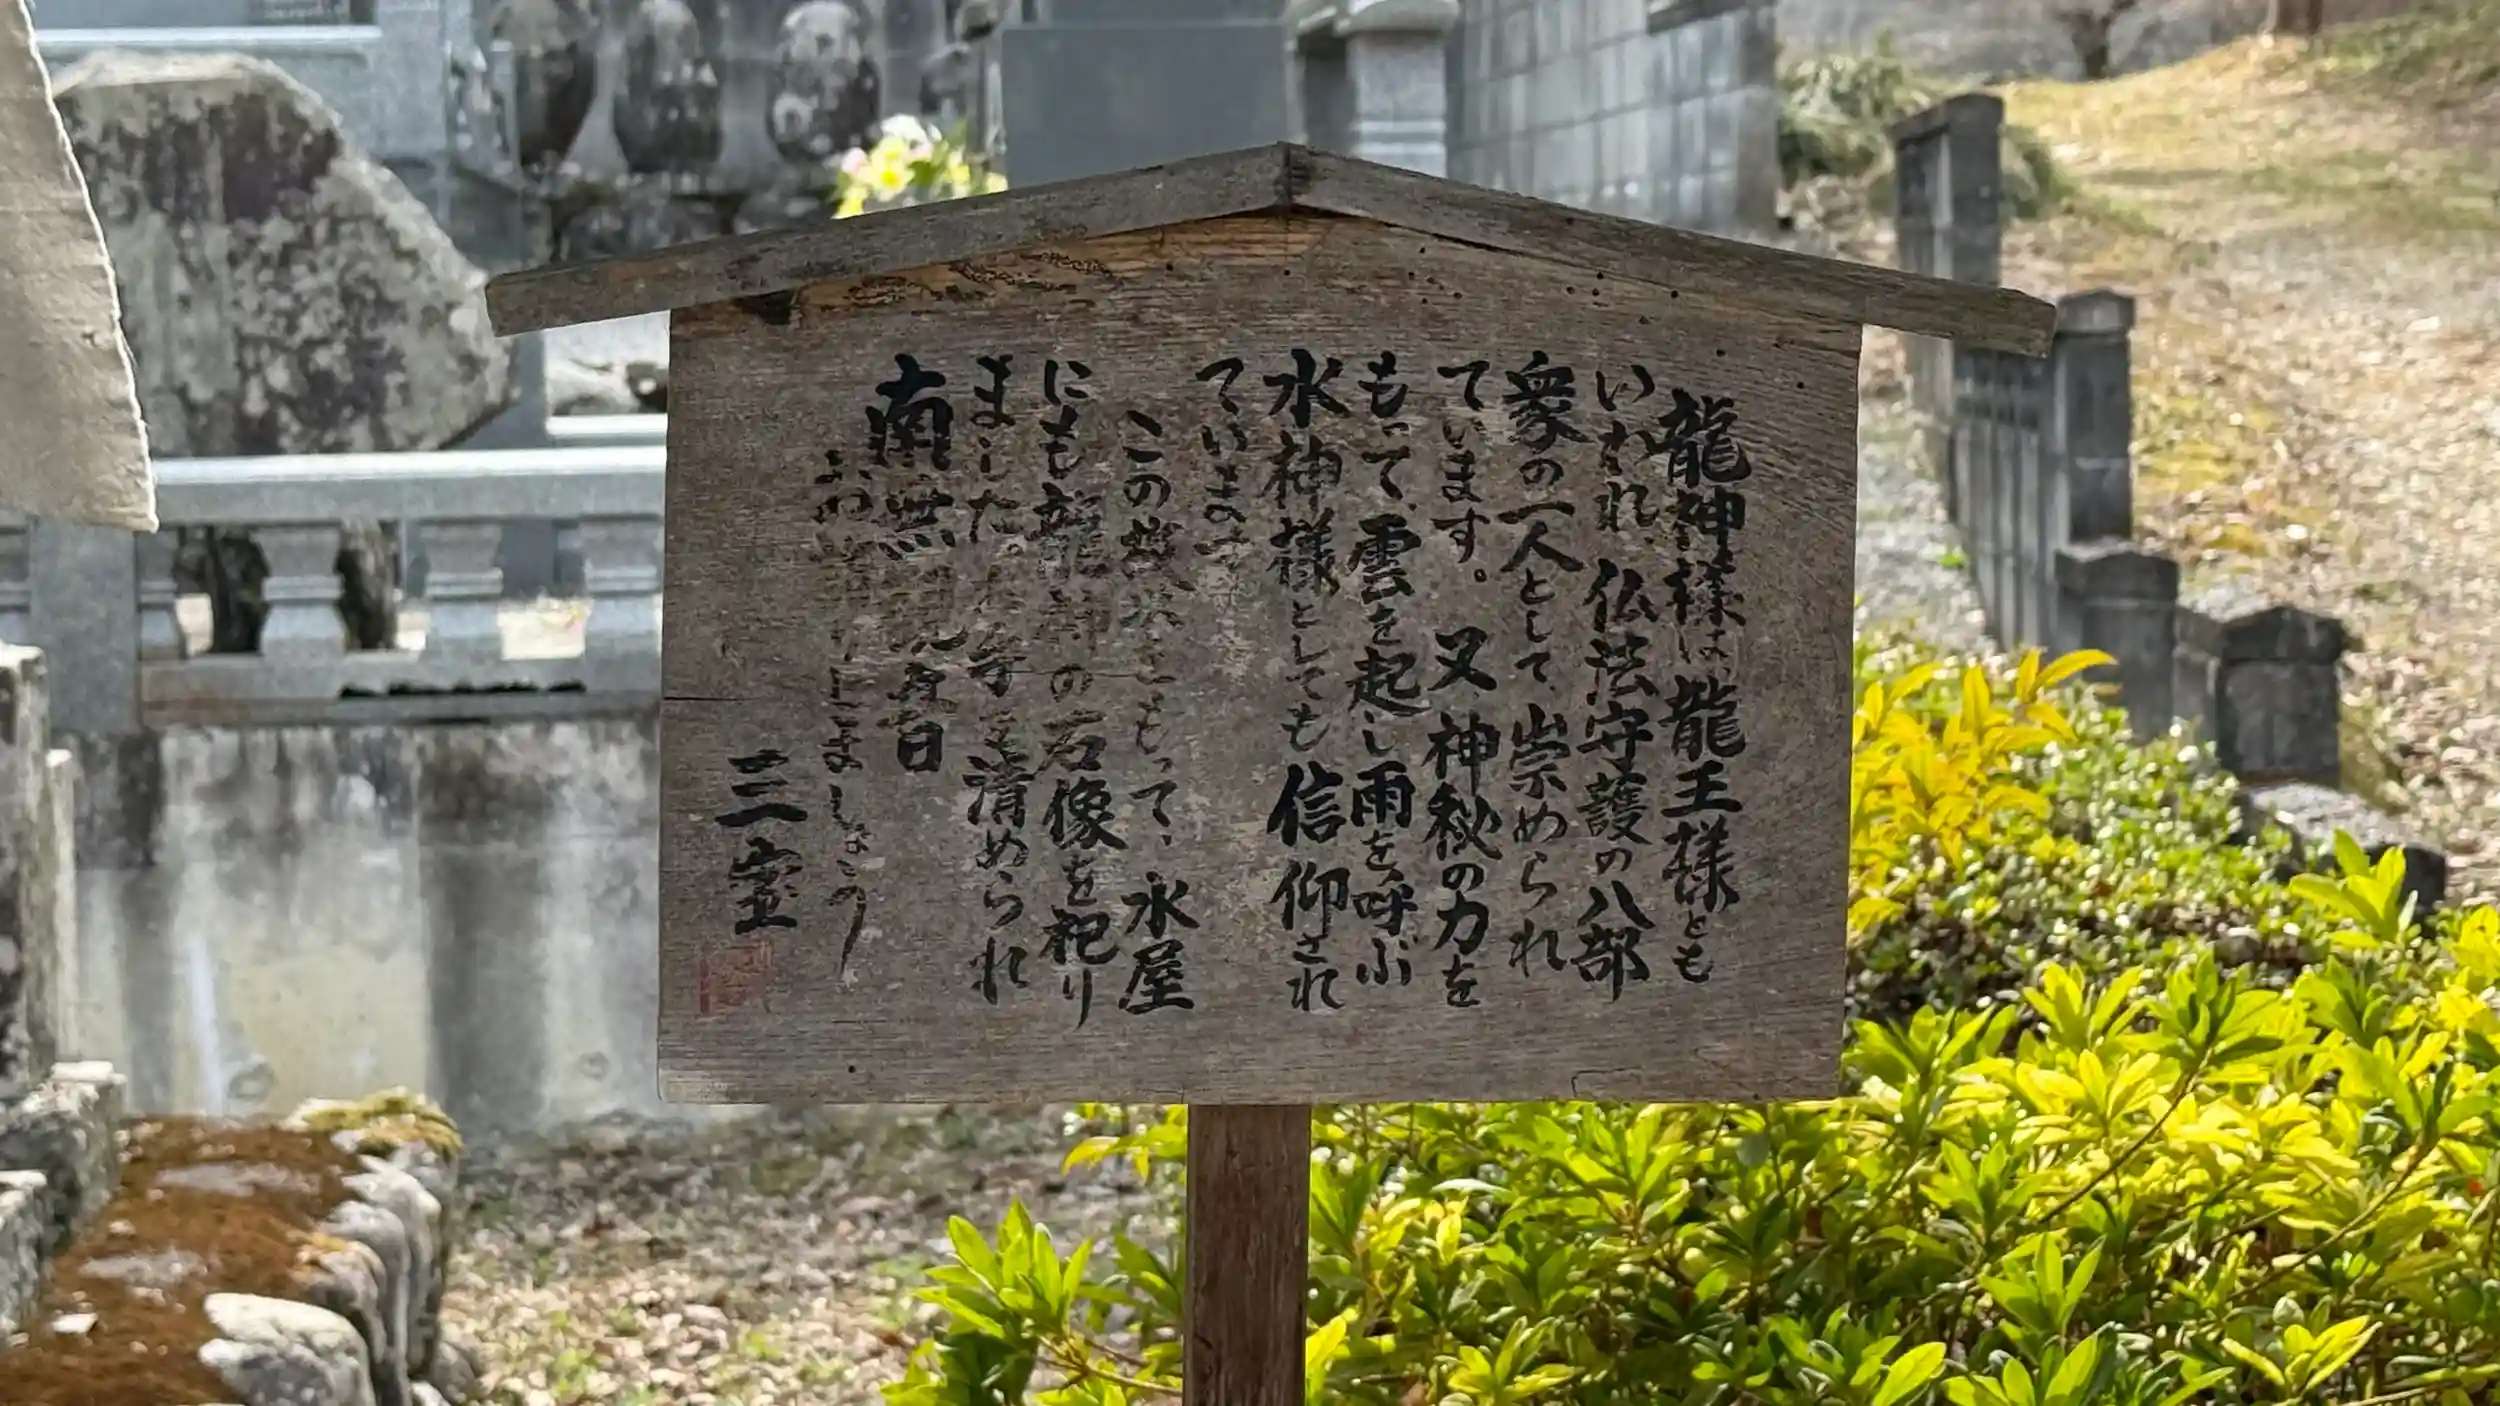 龍神様は、龍王様とも
いわれ、仏法守護の八部
衆の一人として、崇められ
ています。又、神秘の力を
もって、雲を起し雨を呼ぶ
水神様としても信仰され
ています。
この をもって、水屋
にも龍神の石像を祀り
ました。 清められ
南無
ましょう
三宝